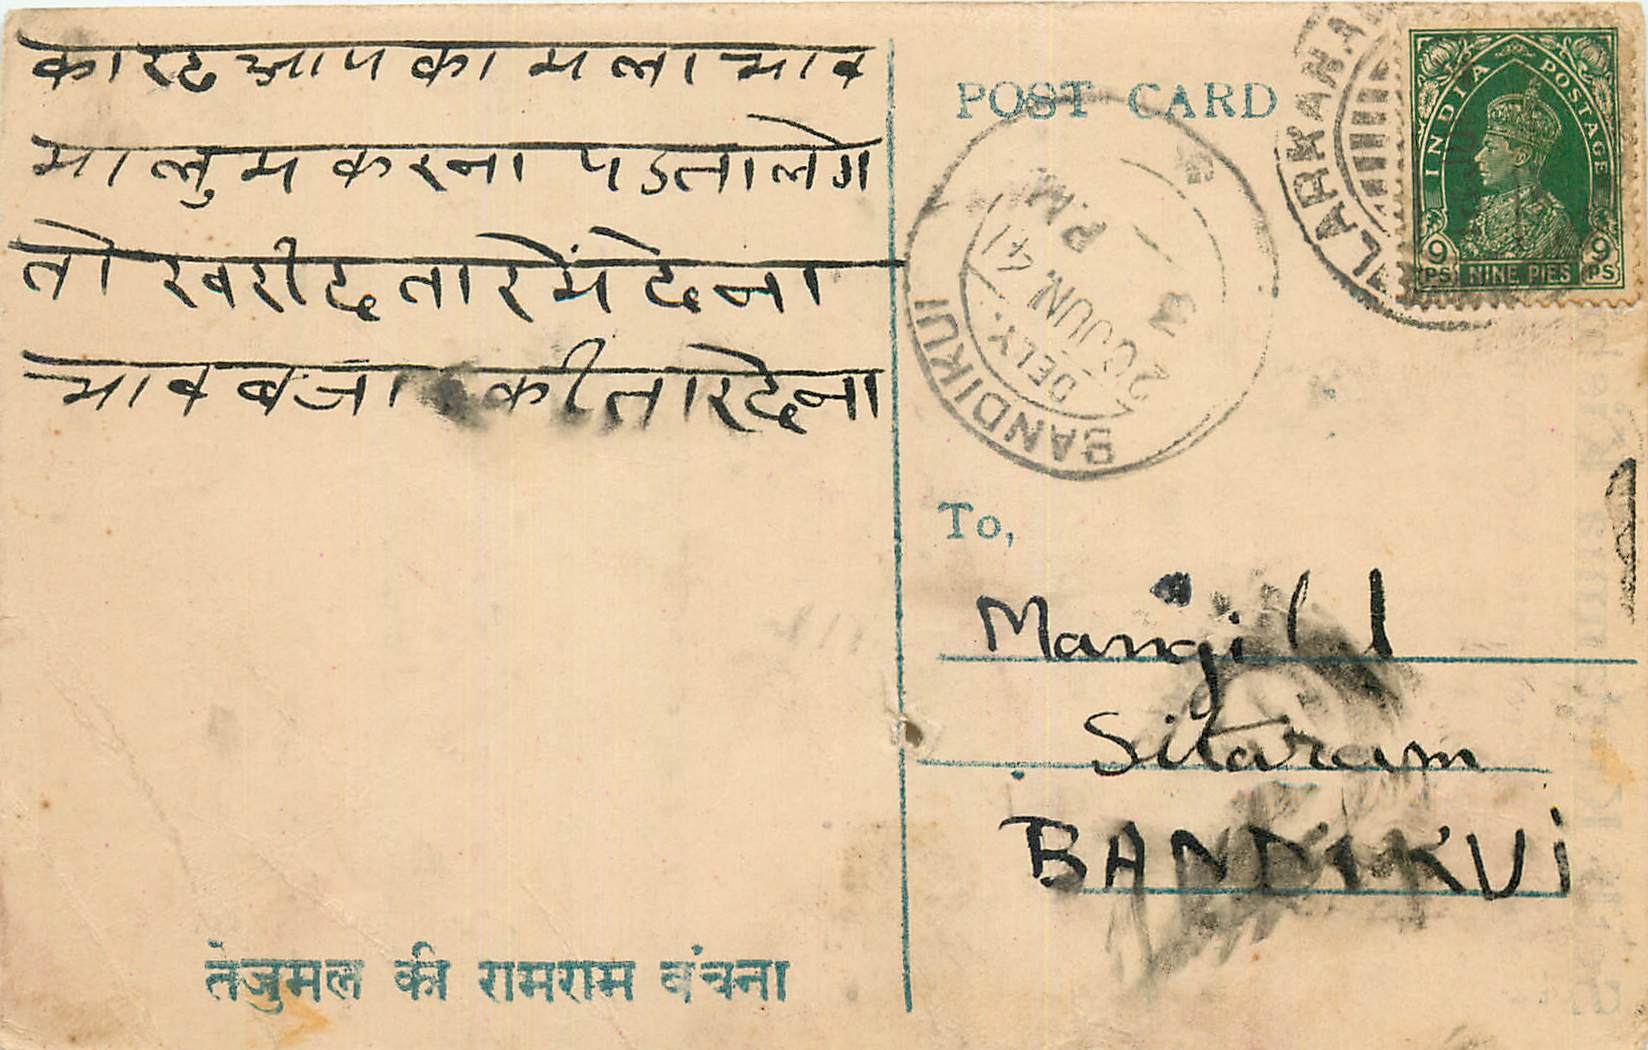 कारट आपका मला भाव
मालुम करना पडता लेग
तो खरीद तारमें देना
भाव बजा की तार देना
तेजुमल की रामराम बंचना
POST CARD
LARKANA
INDIA POSTAGE
9 PS NINE PIES 9 PS
BANDIKUI
DELY.
20 JUN. 41
P.M
To,
Mangilal
Sitaram
BANDIKUI